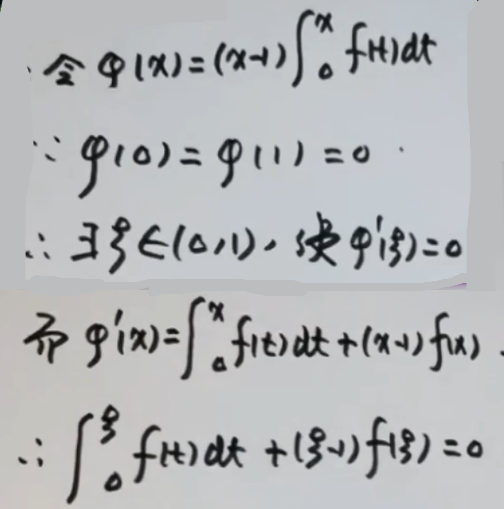 令 φ(x)=(x-1)∫₀ˣ f(t)dt
∵ φ(0)=φ(1)=0
∴ ∃ξ∈(0,1), 使 φ'(ξ)=0
而 φ'(x)=∫₀ˣ f(t)dt+(x-1)f(x).
∴ ∫₀^ξ f(t)dt+(ξ-1)f(ξ)=0